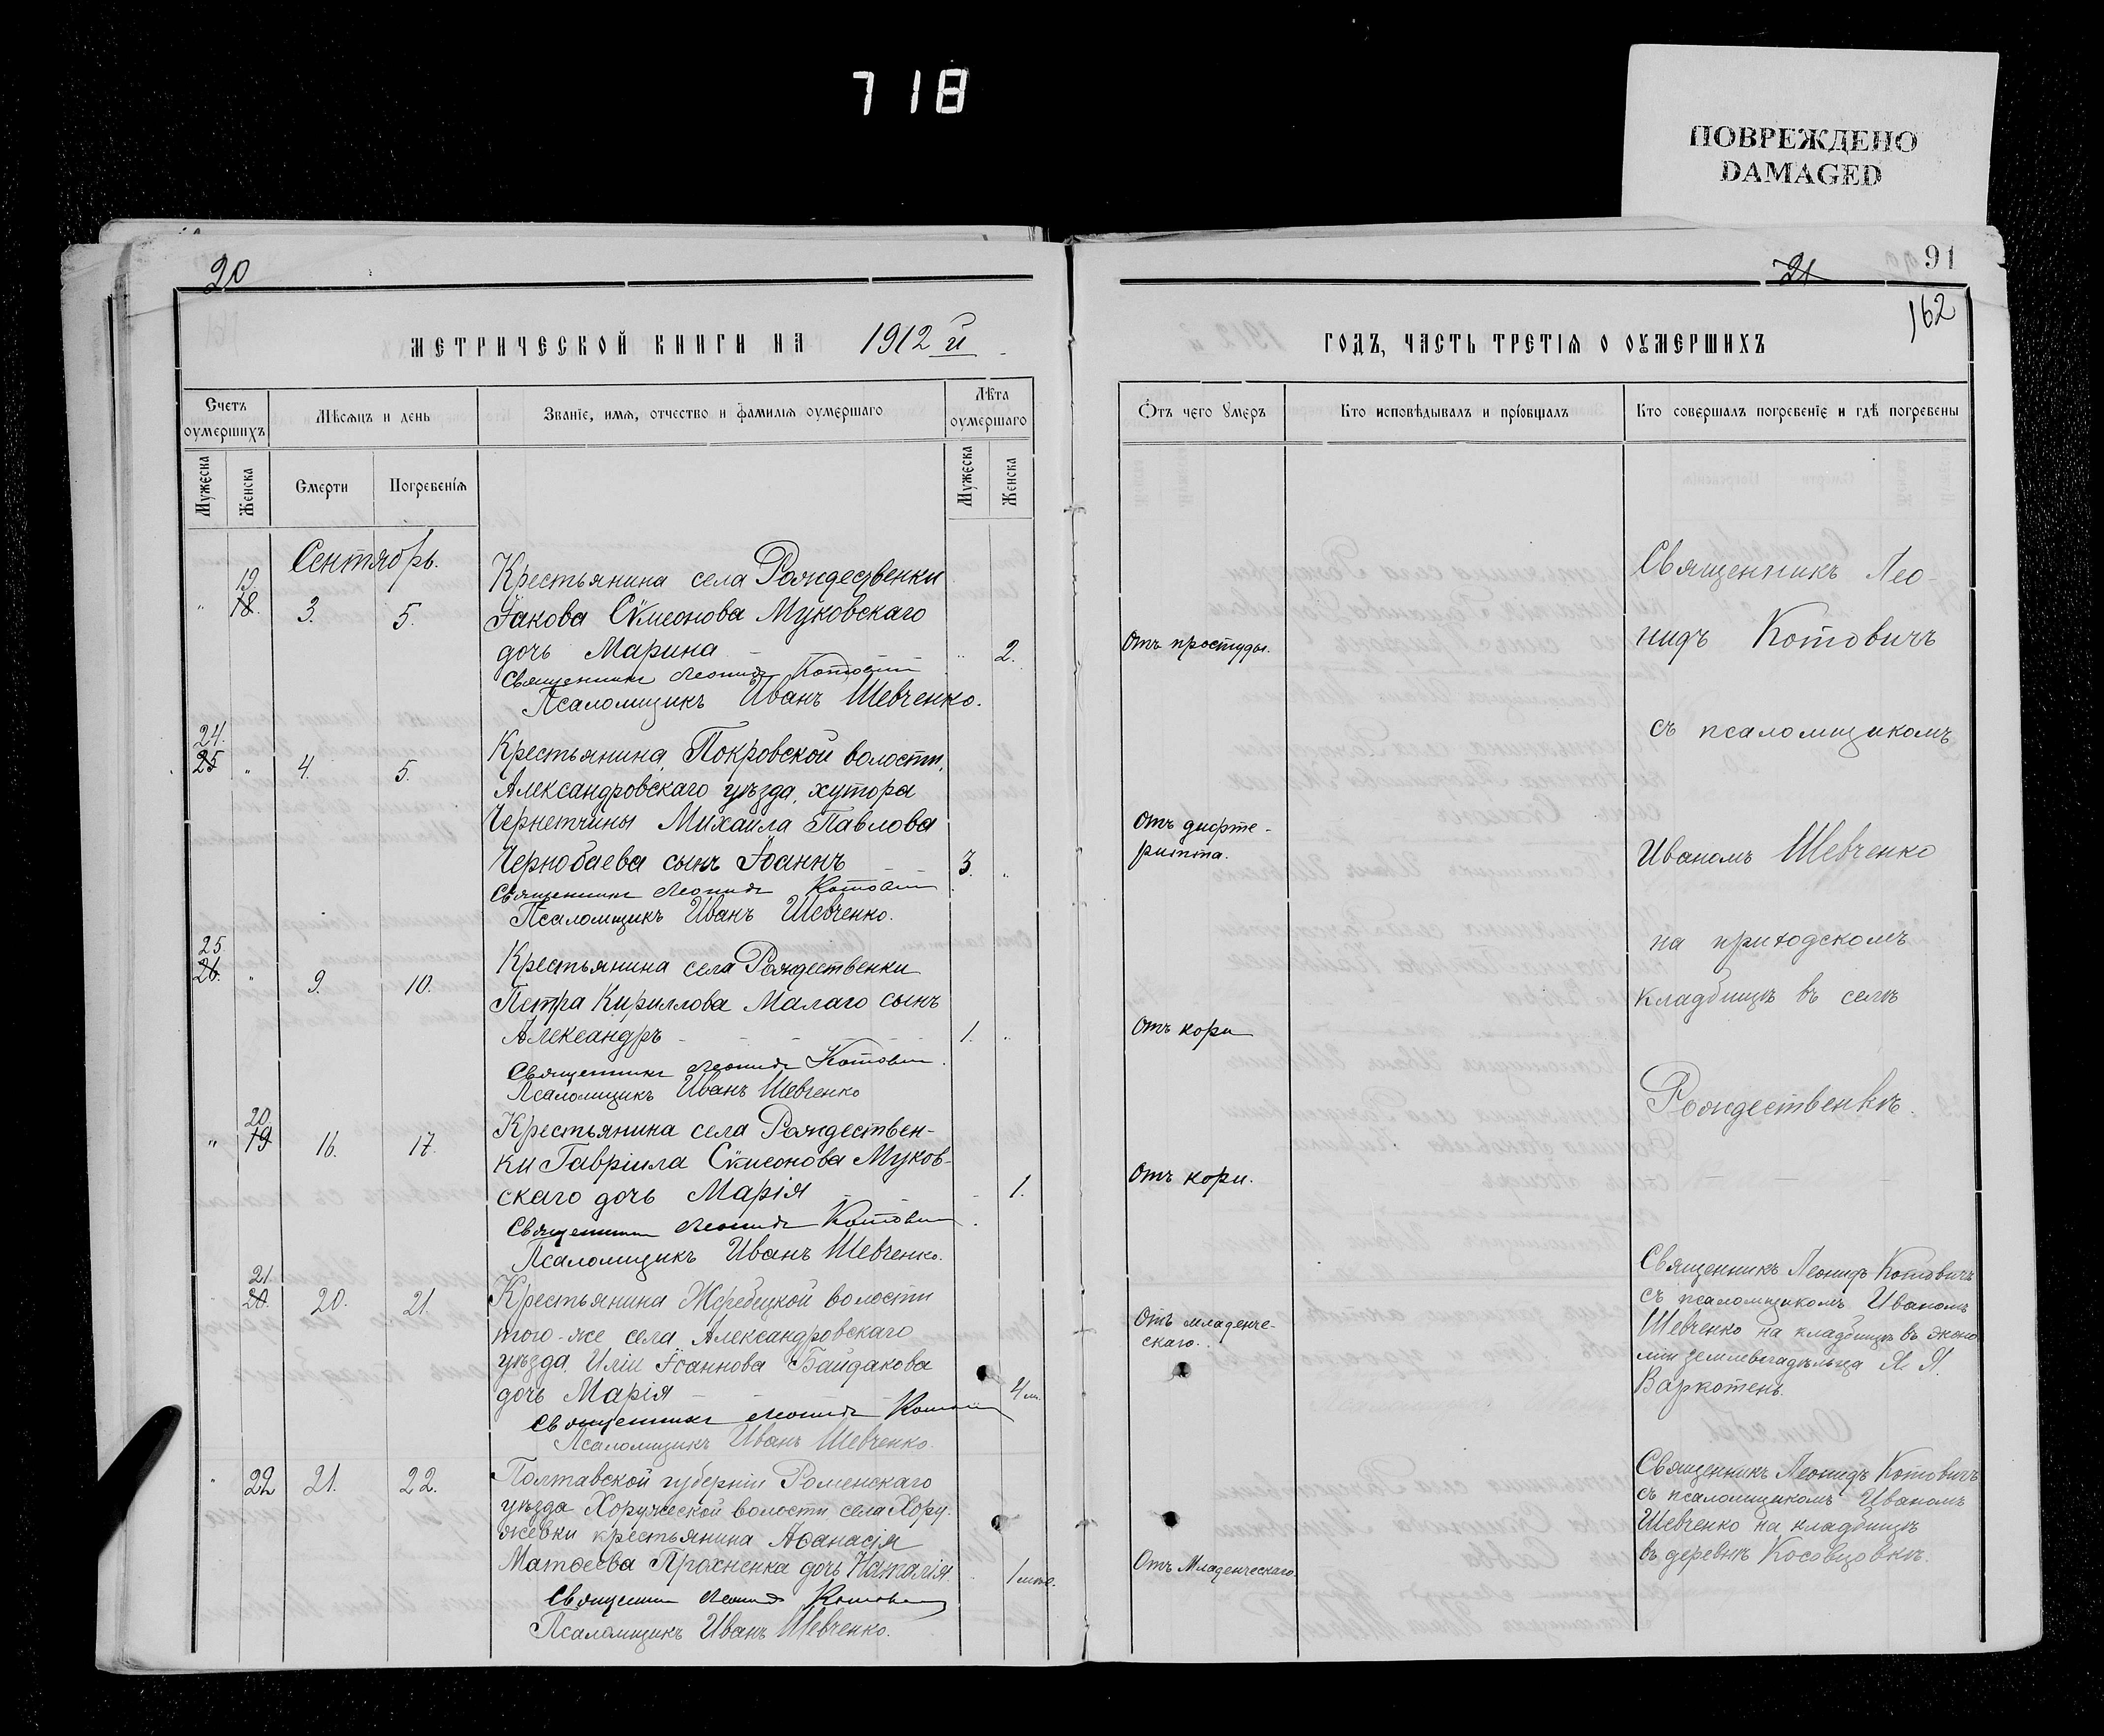 718
ПОВРЕЖДЕНО
DAMAGED
20
МЕТРИЧЕСКОЙ КНИГИ НА 1912 й
Счетъ оумершихъ
Мѣсяцъ и день
Званіе, имя, отчество и фамилія оумершаго
Лѣта оумершаго
Мужеска
Женска
Смерти
Погребенія
Мужеска
Женска
Сентябрь.
19
" 18. 3. 5.
Крестьянина села Рождественки
Іакова Сѵмеонова Муковскаго
дочь Марина " 2.
Священникъ Леонидъ Котовичъ
Псаломщикъ Иванъ Шевченко.
24.
25 " 4. 5.
Крестьянина Покровской волости,
Александровскаго уѣзда, хутора
Чернетчины Михаила Павлова
Чернобаева сынъ Іоаннъ 3. "
Священникъ Леонидъ Котовичъ
Псаломщикъ Иванъ Шевченко.
25
26. " 9. 10.
Крестьянина села Рождественки
Петра Кириллова Малаго сынъ
Александръ 1. "
Священникъ Леонидъ Котовичъ
Псаломщикъ Иванъ Шевченко
20
" 19 16. 17.
Крестьянина села Рождествен-
ки Гавріила Сѵмеонова Муков-
скаго дочь Марія 1.
Священникъ Леонидъ Котовичъ
Псаломщикъ Иванъ Шевченко.
21
20. 20. 21.
Крестьянина Жеребецкой волости
того-же села Александровскаго
уѣзда Иліи Іоаннова Байдакова
дочь Марія 4 м.
Священникъ Леонидъ Котовичъ
Псаломщикъ Иванъ Шевченко.
" 22 21. 22.
Полтавской губерніи Роменскаго
уѣзда Хоружеской волости села Хору-
жевки крестьянина Аѳанасія
Матѳеева Прохненка дочь Наталія.
Священникъ Леонидъ Котовичъ
Псаломщикъ Иванъ Шевченко.
21
91
162
ГОДЪ, ЧАСТЬ ТРЕТІЯ О ОУМЕРШИХЪ
Отъ чего умеръ
Кто исповѣдывалъ и пріобщалъ
Кто совершалъ погребеніе и гдѣ погребены
Отъ простуды.
Отъ дифте-
ритта.
Отъ кори
Отъ кори.
Отъ младенче-
скаго.
Отъ Младенческаго
Священникъ Лео-
нидъ Котовичъ
съ псаломщикомъ
Иваномъ Шевченко
на приходскомъ
кладбищѣ въ селѣ
Рождественкѣ.
Священникъ Леонидъ Котовичъ
съ псаломщикомъ Иваномъ
Шевченко на кладбищѣ въ эконо
міи землевладѣльца Я. Я.
Варкотенъ.
Священникъ Леонидъ Котовичъ
съ псаломщикомъ Иваномъ
Шевченко на кладбищѣ
въ деревнѣ Косовцовкѣ.